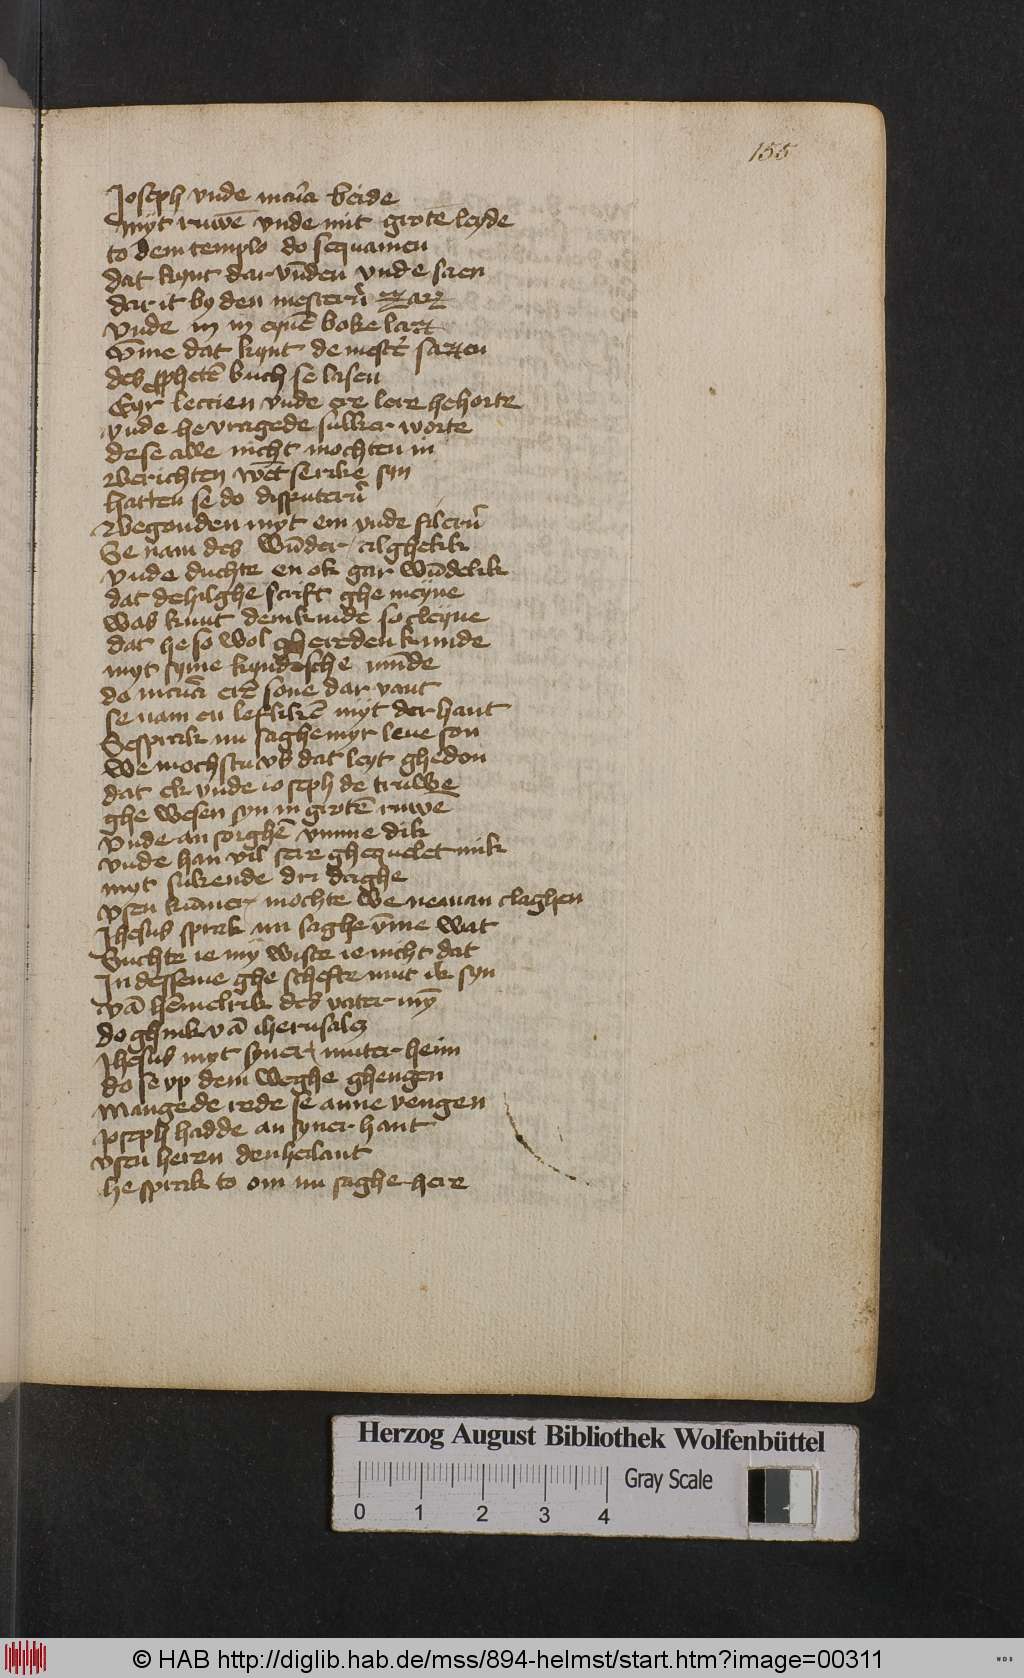 155
Joseph vnde mar̄a beide
myt ruwē vnde mit grotē leyde
to dem templo do se quamen
dat kynt dar vn̄den vnde saen
dar it by den mester̄n zatz
vnde in in eynē boke latz
v̄me dat kynt de mest̄er satzen
des ꝓphetē buch se lasen
Eyr lectien vnde ere lere he horte
vnde he vragede sulker worte
de se alle nicht mochten in
berichten wēt se rike syn
hatten se do disputer̄n
Begonden myt em vnde siler̄n
Se nam des wūder alghelik
vnde duchte en ok gar wūdelik
dat de hilghe scrift ghemeyne
was kunt dem kinde so cleyne
dat he so wol ghereden kunde
myt syme kyndesche mūde
do mar̄a erē sone dar vant
se nam en leflikē myt der hant
Se sprak nu saghe myr leue son
we mochstu vs dat leyt ghedon
dat ek vnde ioseph de truwe
ghe wesen syn in grotē ruwe
vnde an sorghē vmme dik
vnde han vil sere ghequelet mik
myt sukende dri daghe
vsen kūmer mochte we neman claghen
Jhesus sprak nu saghe v̄me wat
Suchte ie my wiste ie nicht dat
In desseme ghe schefte mut ik syn
vā hemelrik des vater mȳ
do ghink vā iherusalē
Jhesus myt syner muter heim
do se vp dem weghe ghengen
mangede rede se anne vengen
Joseph hadde an syner hant
vsen heren den heilant
he sprak to om nu saghe here
Herzog August Bibliothek Wolfenbüttel
0 1 2 3 4
Gray Scale
© HAB http://diglib.hab.de/mss/894-helmst/start.htm?image=00311